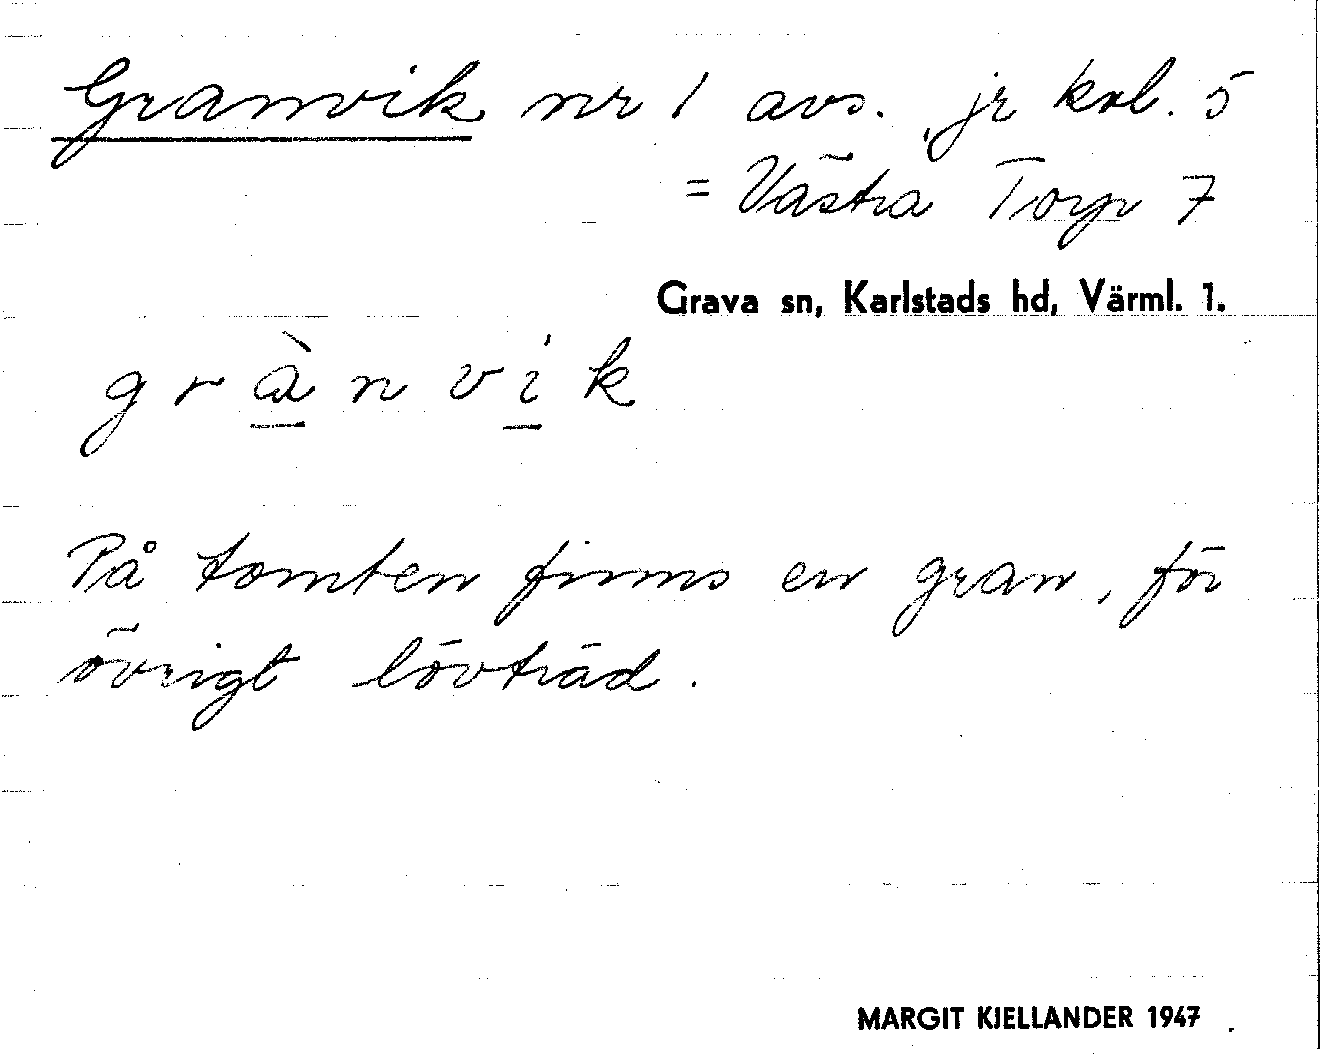 Granvik nr 1 avs. jr kol. 5
= Västra Torp 7
Grava sn, Karlstads hd, Värml. 1.
g r à n v i k
På tomten finns en gran, för
övrigt lövträd.
MARGIT KJELLANDER 1947